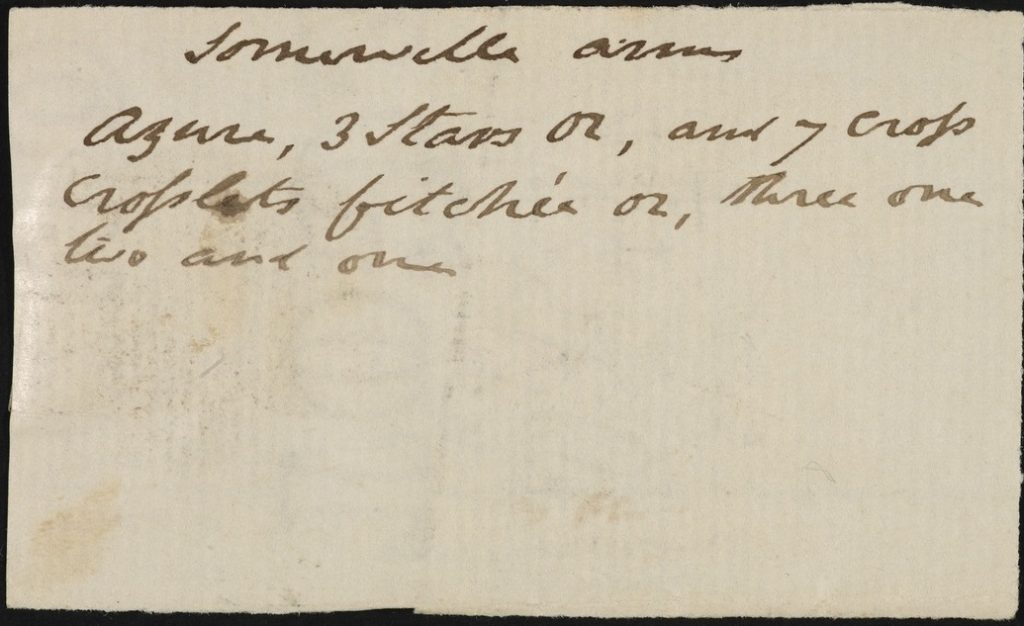 Somerville arms
Azure, 3 Stars Or, and 7 Cross
Crosslets fitchée or, three one
two and one